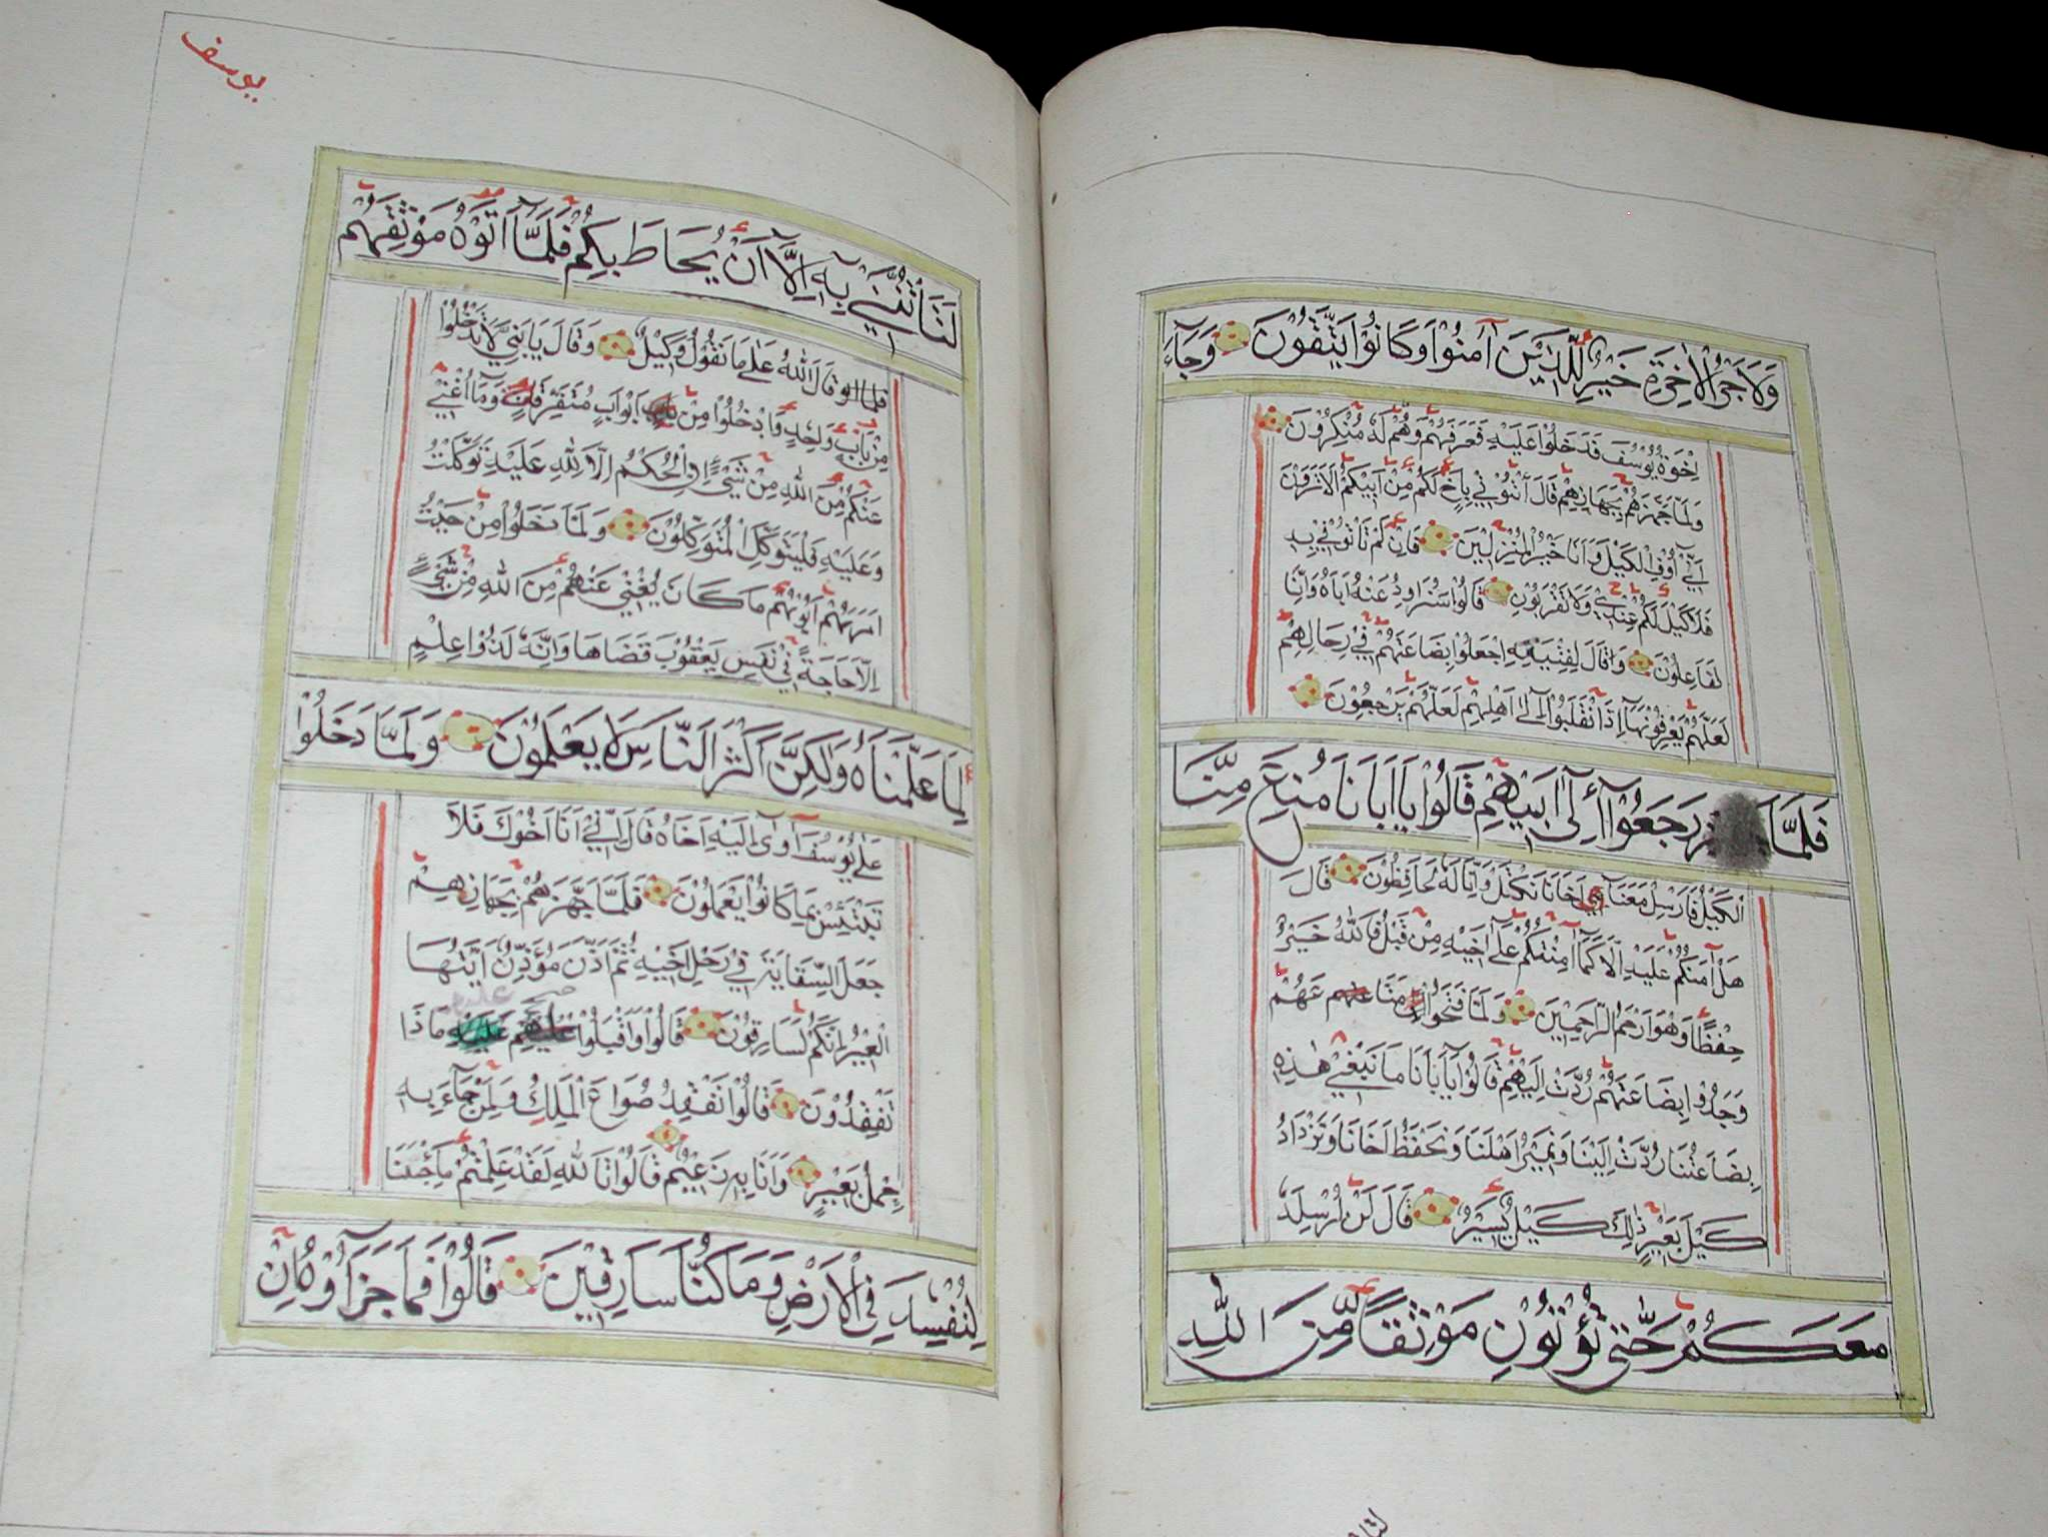 وَلَاَجْرُ الْاٰخِرَةِ خَيْرٌ لِلَّذِيْنَ آمَنُوْا وَكَانُوْا يَتَّقُوْنَ وَجَآءَ
اِخْوَةُ يُوْسُفَ فَدَخَلُوْا عَلَيْهِ فَعَرَفَهُمْ وَهُمْ لَهُ مُنْكِرُوْنَ
وَلَمَّا جَهَّزَهُمْ بِجَهَازِهِمْ قَالَ ائْتُوْنِيْ بِاَخٍ لَكُمْ مِنْ اَبِيْكُمْ اَلَا تَرَوْنَ
اَنِّيْ اُوْفِ الْكَيْلَ وَاَنَا خَيْرُ الْمُنْزِلِيْنَ فَاِنْ لَمْ تَاْتُوْنِيْ بِهِ
فَلَا كَيْلَ لَكُمْ عِنْدِيْ وَلَا تَقْرَبُوْنِ قَالُوْا سَنُرَاوِدُ عَنْهُ اَبَاهُ وَاِنَّا
لَفَاعِلُوْنَ وَقَالَ لِفِتْيَتِهِ اجْعَلُوْا بِضَاعَتَهُمْ فِيْ رِحَالِهِمْ
لَعَلَّهُمْ يَعْرِفُوْنَهَا اِذَا انْقَلَبُوْا اِلٰى اَهْلِهِمْ لَعَلَّهُمْ يَرْجِعُوْنَ
فَلَمَّا رَجَعُوْا اِلٰى اَبِيْهِمْ قَالُوْا يَا اَبَانَا مُنِعَ مِنَّا
الْكَيْلُ فَاَرْسِلْ مَعَنَا اَخَانَا نَكْتَلْ وَاِنَّا لَهُ لَحَافِظُوْنَ قَالَ
هَلْ آمَنُكُمْ عَلَيْهِ اِلَّا كَمَا اَمِنْتُكُمْ عَلٰى اَخِيْهِ مِنْ قَبْلُ فَاللّٰهُ خَيْرٌ
حِفْظًا وَهُوَ اَرْحَمُ الرَّاحِمِيْنَ وَلَمَّا فَتَحُوْا مَتَاعَهُمْ
وَجَدُوْا بِضَاعَتَهُمْ رُدَّتْ اِلَيْهِمْ قَالُوْا يَا اَبَانَا مَا نَبْغِيْ هٰذِهِ
بِضَاعَتُنَا رُدَّتْ اِلَيْنَا وَنَمِيْرُ اَهْلَنَا وَنَحْفَظُ اَخَانَا وَنَزْدَادُ
كَيْلَ بَعِيْرٍ ذٰلِكَ كَيْلٌ يَسِيْرٌ قَالَ لَنْ اُرْسِلَهُ
مَعَكُمْ حَتّٰى تُؤْتُوْنِ مَوْثِقًا مِنَ اللّٰهِ
يوسف
لَتَاْتُنَّنِيْ بِهِ اِلَّا اَنْ يُحَاطَ بِكُمْ فَلَمَّا اٰتَوْهُ مَوْثِقَهُمْ
قَالَ اللّٰهُ عَلٰى مَا نَقُوْلُ وَكِيْلٌ وَقَالَ يَا بَنِيَّ لَا تَدْخُلُوْا
مِنْ بَابٍ وَاحِدٍ وَادْخُلُوْا مِنْ اَبْوَابٍ مُتَفَرِّقَةٍ وَمَا اُغْنِيْ
عَنْكُمْ مِنَ اللّٰهِ مِنْ شَيْءٍ اِنِ الْحُكْمُ اِلَّا لِلّٰهِ عَلَيْهِ تَوَكَّلْتُ
وَعَلَيْهِ فَلْيَتَوَكَّلِ الْمُتَوَكِّلُوْنَ وَلَمَّا دَخَلُوْا مِنْ حَيْثُ
اَمَرَهُمْ اَبُوْهُمْ مَا كَانَ يُغْنِيْ عَنْهُمْ مِنَ اللّٰهِ مِنْ شَيْءٍ
اِلَّا حَاجَةً فِيْ نَفْسِ يَعْقُوْبَ قَضَاهَا وَاِنَّهُ لَذُوْ عِلْمٍ
لِمَا عَلَّمْنَاهُ وَلٰكِنَّ اَكْثَرَ النَّاسِ لَا يَعْلَمُوْنَ وَلَمَّا دَخَلُوْا
عَلٰى يُوْسُفَ آوٰى اِلَيْهِ اَخَاهُ قَالَ اِنِّيْ اَنَا اَخُوْكَ فَلَا
تَبْتَئِسْ بِمَا كَانُوْا يَعْمَلُوْنَ فَلَمَّا جَهَّزَهُمْ بِجَهَازِهِمْ
جَعَلَ السِّقَايَةَ فِيْ رَحْلِ اَخِيْهِ ثُمَّ اَذَّنَ مُؤَذِّنٌ اَيَّتُهَا
الْعِيْرُ اِنَّكُمْ لَسَارِقُوْنَ قَالُوْا وَاَقْبَلُوْا عَلَيْهِمْ مَاذَا
تَفْقِدُوْنَ قَالُوْا نَفْقِدُ صُوَاعَ الْمَلِكِ وَلِمَنْ جَآءَ بِهِ
حِمْلُ بَعِيْرٍ وَاَنَا بِهِ زَعِيْمٌ قَالُوْا تَاللّٰهِ لَقَدْ عَلِمْتُمْ مَا جِئْنَا
لِنُفْسِدَ فِي الْاَرْضِ وَمَا كُنَّا سَارِقِيْنَ قَالُوْا فَمَا جَزَآؤُهُ اِنْ